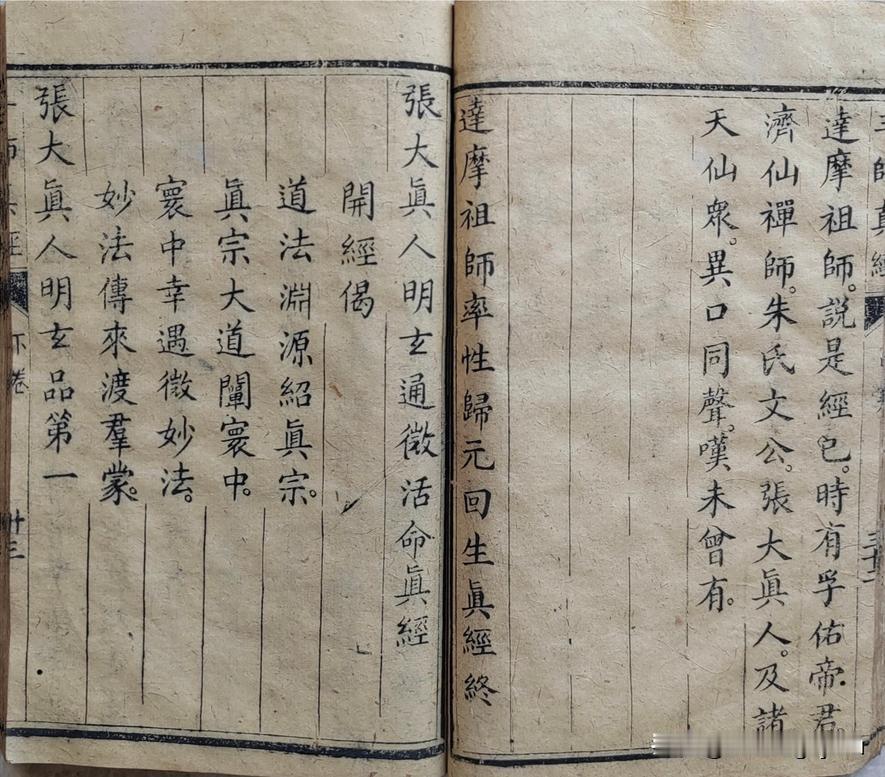 達摩祖師。說是經已。時有孚佑帝君。
濟仙禪師。朱氏文公。張大眞人。及諸
天仙衆。異口同聲。嘆未曾有。
達摩祖師率性歸元回生眞經終
張大眞人明玄通微活命眞經
開經偈
道法淵源紹眞宗。
眞宗大道闡寰中。
寰中幸遇微妙法。
妙法傳來渡羣蒙。
張大眞人明玄品第一
下卷
卅三